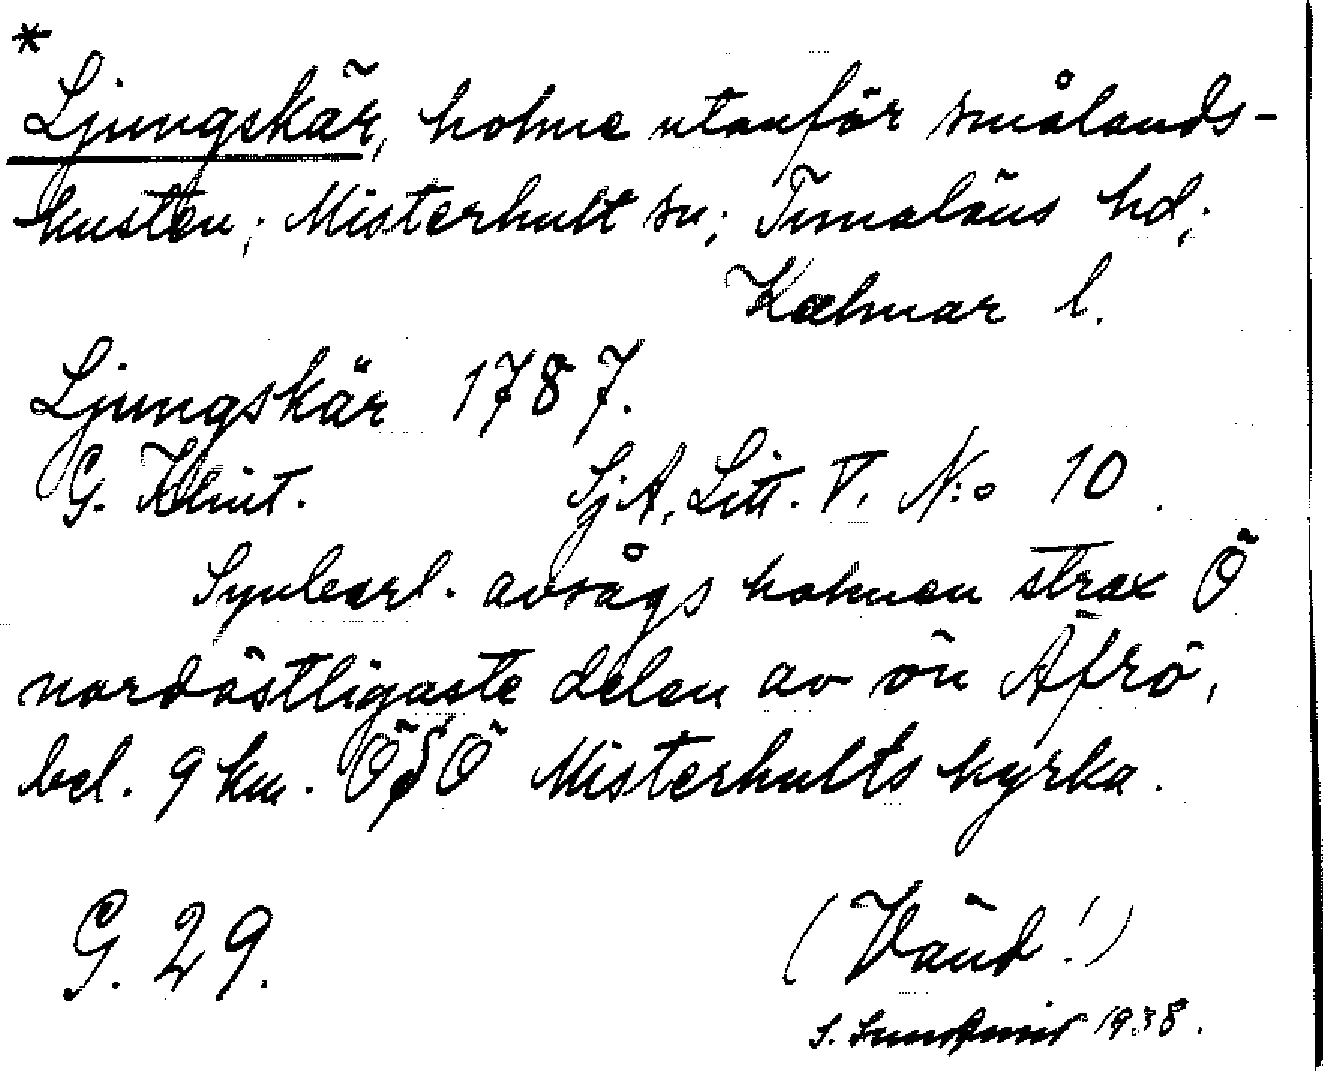 *
Ljungskär, holme utanför smålands-
kusten; Misterhult sn; Tunaläns hd;
Kalmar l.
Ljungskär 1787.
G. Klint. SjA, Litt. V. N:o 10.
Synbarl. avsågs holmen strax Ö
nordöstligaste delen av ön Äfrö,
bel. 9 km. ÖSÖ Misterhults kyrka.
G. 29. (Vänd!)
S. 1938.